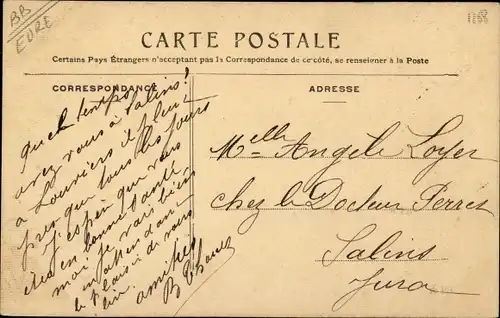 BB
EURE
1288
CARTE POSTALE
Certains Pays Étrangers n'acceptant pas la Correspondance de ce côté, se renseigner à la Poste
CORRESPONDANCE
ADRESSE
Quel temps
avez vous à Salins!
à Louviers il pleut
presque tous les jours
J'espère que vous
êtes en bonne santé,
moi je vais bien
en attendant
le plaisir de vous
lire.
amitiés
B
Melle Angèle Loyer
chez le Docteur Perret
Salins
Jura